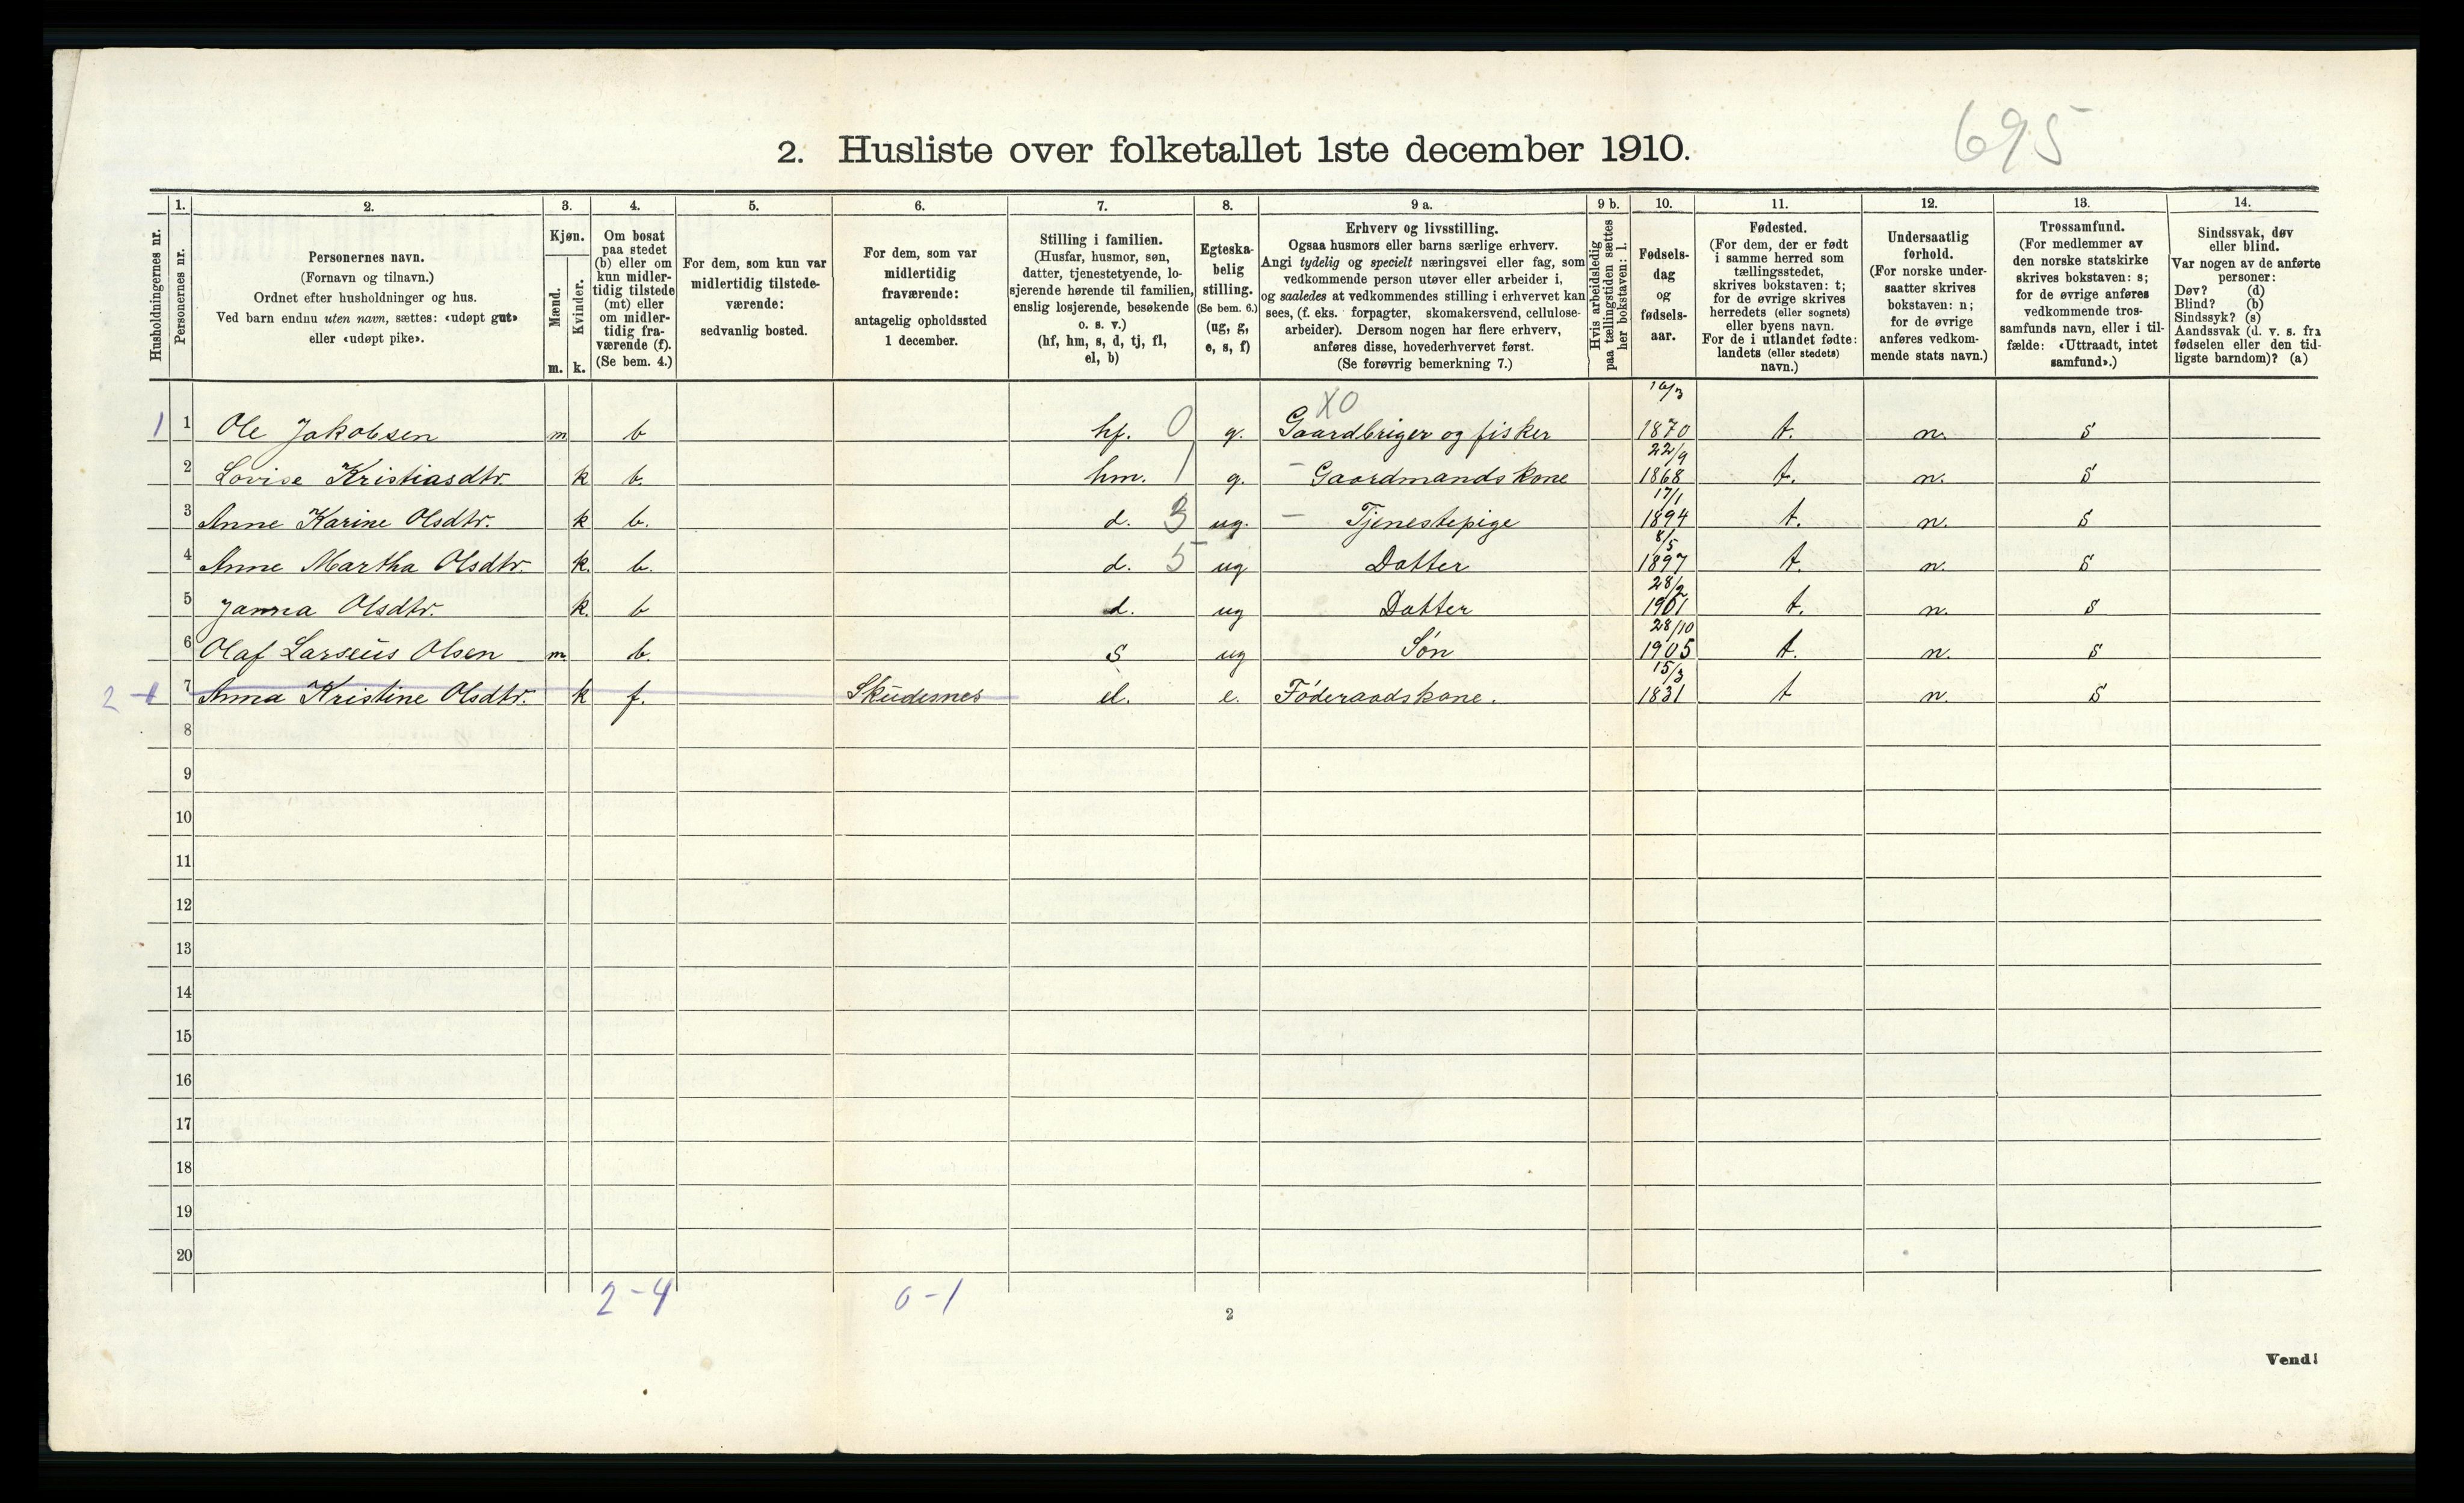 695
2. Husliste over folketallet 1ste december 1910.
Husholdningernes nr.
1.
Personernes nr.
2.
Personernes navn.
(Fornavn og tilnavn.)
Ordnet efter husholdninger og hus.
Ved barn endnu uten navn, sættes: «udøpt gut»
eller «udøpt pike».
3.
Kjøn.
Mænd.
Kvinder.
m. k.
4.
Om bosat
paa stedet
(b) eller om
kun midler-
tidig tilstede
(mt) eller
om midler-
tidig fra-
værende (f).
(Se bem. 4.)
5.
For dem, som kun var
midlertidig tilstede-
værende:
sedvanlig bosted.
6.
For dem, som var
midlertidig
fraværende:
antagelig opholdssted
1 december.
7.
Stilling i familien.
(Husfar, husmor, søn,
datter, tjenestetyende, lo-
sjerende hørende til familien,
enslig losjerende, besøkende
o. s. v.)
(hf, hm, s, d, tj, fl,
el, b)
8.
Egteska-
belig
stilling.
(Se bem. 6.)
(ug, g,
e, s, f)
9 a.
Erhverv og livsstilling.
Ogsaa husmors eller barns særlige erhverv.
Angi tydelig og specielt næringsvei eller fag, som
vedkommende person utøver eller arbeider i,
og saaledes at vedkommendes stilling i erhvervet kan
sees, (f. eks. forpagter, skomakersvend, cellulose-
arbeider). Dersom nogen har flere erhverv,
anføres disse, hovederhvervet først.
(Se forøvrig bemerkning 7.)
9 b.
Hvis arbeidsledig
paa tællingstiden sættes
her bokstaven: l.
10.
Fødsels-
dag
og
fødsels-
aar.
11.
Fødested.
(For dem, der er født
i samme herred som
tællingsstedet,
skrives bokstaven: t;
for de øvrige skrives
herredets (eller sognets)
eller byens navn.
For de i utlandet fødte:
landets (eller stedets)
navn.)
12.
Undersaatlig
forhold.
(For norske under-
saatter skrives
bokstaven: n;
for de øvrige
anføres vedkom-
mende stats navn.)
13.
Trossamfund.
(For medlemmer av
den norske statskirke
skrives bokstaven: s;
for de øvrige anføres
vedkommende tros-
samfunds navn, eller i til-
fælde: «Uttraadt, intet
samfund».)
14.
Sindssvak, døv
eller blind.
Var nogen av de anførte
personer:
Døv? (d)
Blind? (b)
Sindssyk? (s)
Aandssvak (d. v. s. fra
fødselen eller den tid-
ligste barndom)? (a)
1 1 Ole Jakobsen m b hf. 0 g. X0 Gaardbriger og fisker 16/3 1870 t. n. s
2 Lovise Kristiasdtr. k b. hm. 1 g. – Gaardmandskone 22/9 1868 t. n. s
3 Anne Karine Olsdtr. k b. d. 3 ug. – Tjenestepige 17/1 1894 t. n. s
4 Anne Martha Olsdtr. k. b. d. 5 ug Datter 8/5 1897 t. n. s
5 Janna Olsdtr. k. b d. ug Datter 28/2 1901 t. n. s
6 Olaf Larseüs Olsen m b. s ug Søn 28/10 1905 t. n. s
2-1 7 Anna Kristine Olsdtr. k f. Sküdesnes el. e. Føderaadskone. 15/3 1831 t n. s
8
9
10
11
12
13
14
15
16
17
18
19
20
2-4 0-1
2
Vend!